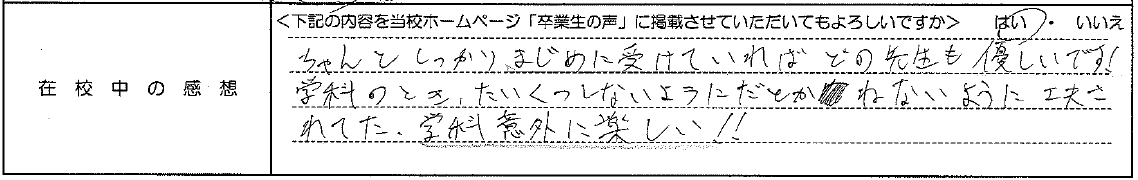 <下記の内容を当校ホームページ「卒業生の声」に掲載させていただいてもよろしいですか> はい ・ いいえ
在校中の感想
ちゃんとしっかり、まじめに受けていればどの先生も優しいです!
学科のとき、たいくつしないようにだとかねないように工夫さ
れてた、学科意外に楽しい!!